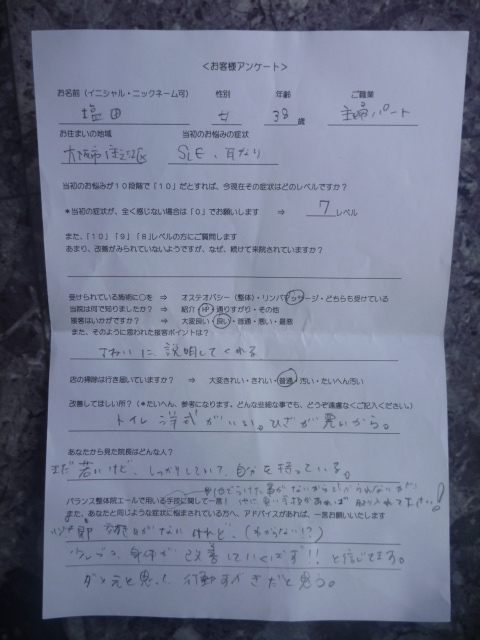 ＜お客様アンケート＞
お名前（イニシャル・ニックネーム可） 性別 年齢 ご職業
塩田 女 38歳 主婦パート
お住まいの地域 当初のお悩みの症状
大阪市住之江区 SLE、耳なり
当初のお悩みが１０段階で「１０」だとすれば、今現在その症状はどのレベルですか？
＊当初の症状が、全く感じない場合は「０」でお願いします ⇒ 7 レベル
また、「１０」「９」「８」レベルの方にご質問します
あまり、改善がみられていないようですが、なぜ、続けて来院されていますか？
受けられている施術に○を ⇒ オステオパシー（整体）・リンパマッサージ・どちらも受けている
当院は何で知りましたか？ ⇒ 紹介・HP・通りすがり・その他
接客はいかがですか？ ⇒ 大変良い・良い・普通・悪い・最悪
また、そのように思われた接客ポイントは？
ていねいに説明してくれる
店の掃除は行き届いていますか？ ⇒ 大変きれい・きれい・普通・汚い・たいへん汚い
改善してほしい所？（＊たいへん、参考になります。どんな些細な事でも、どうぞ遠慮なくご記入ください。）
トイレ洋式がいい。ひざが悪いから。
あなたから見た院長はどんな人？
まだ若いけど、しっかりしていて、自分を持っている。
バランス整体院エールで用いる手技に関して一言！
また、あなたと同じような症状に悩まされている方へ、アドバイスがあれば、一言お願いいたします
効き目がないけれど、（わからない!?）
身体が改善していくはず!!と信じてます。
ダメ元と思って行動すべきだと思う。